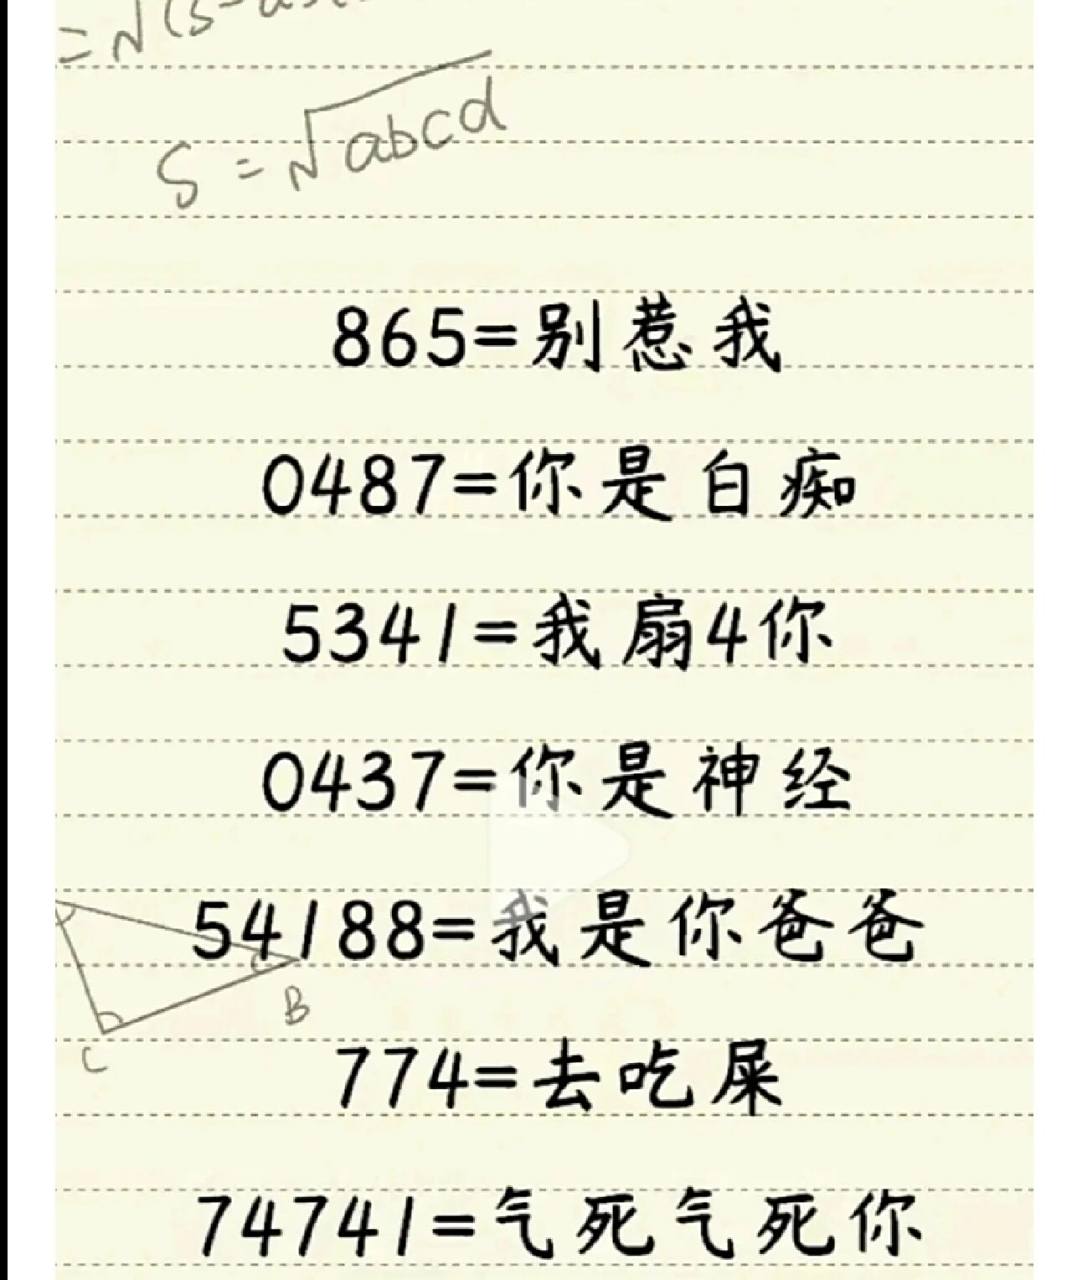 S=√abcd
865=别惹我
0487=你是白痴
5341=我扇4你
0437=你是神经
54188=我是你爸爸
B
C
774=去吃屎
74741=气死气死你